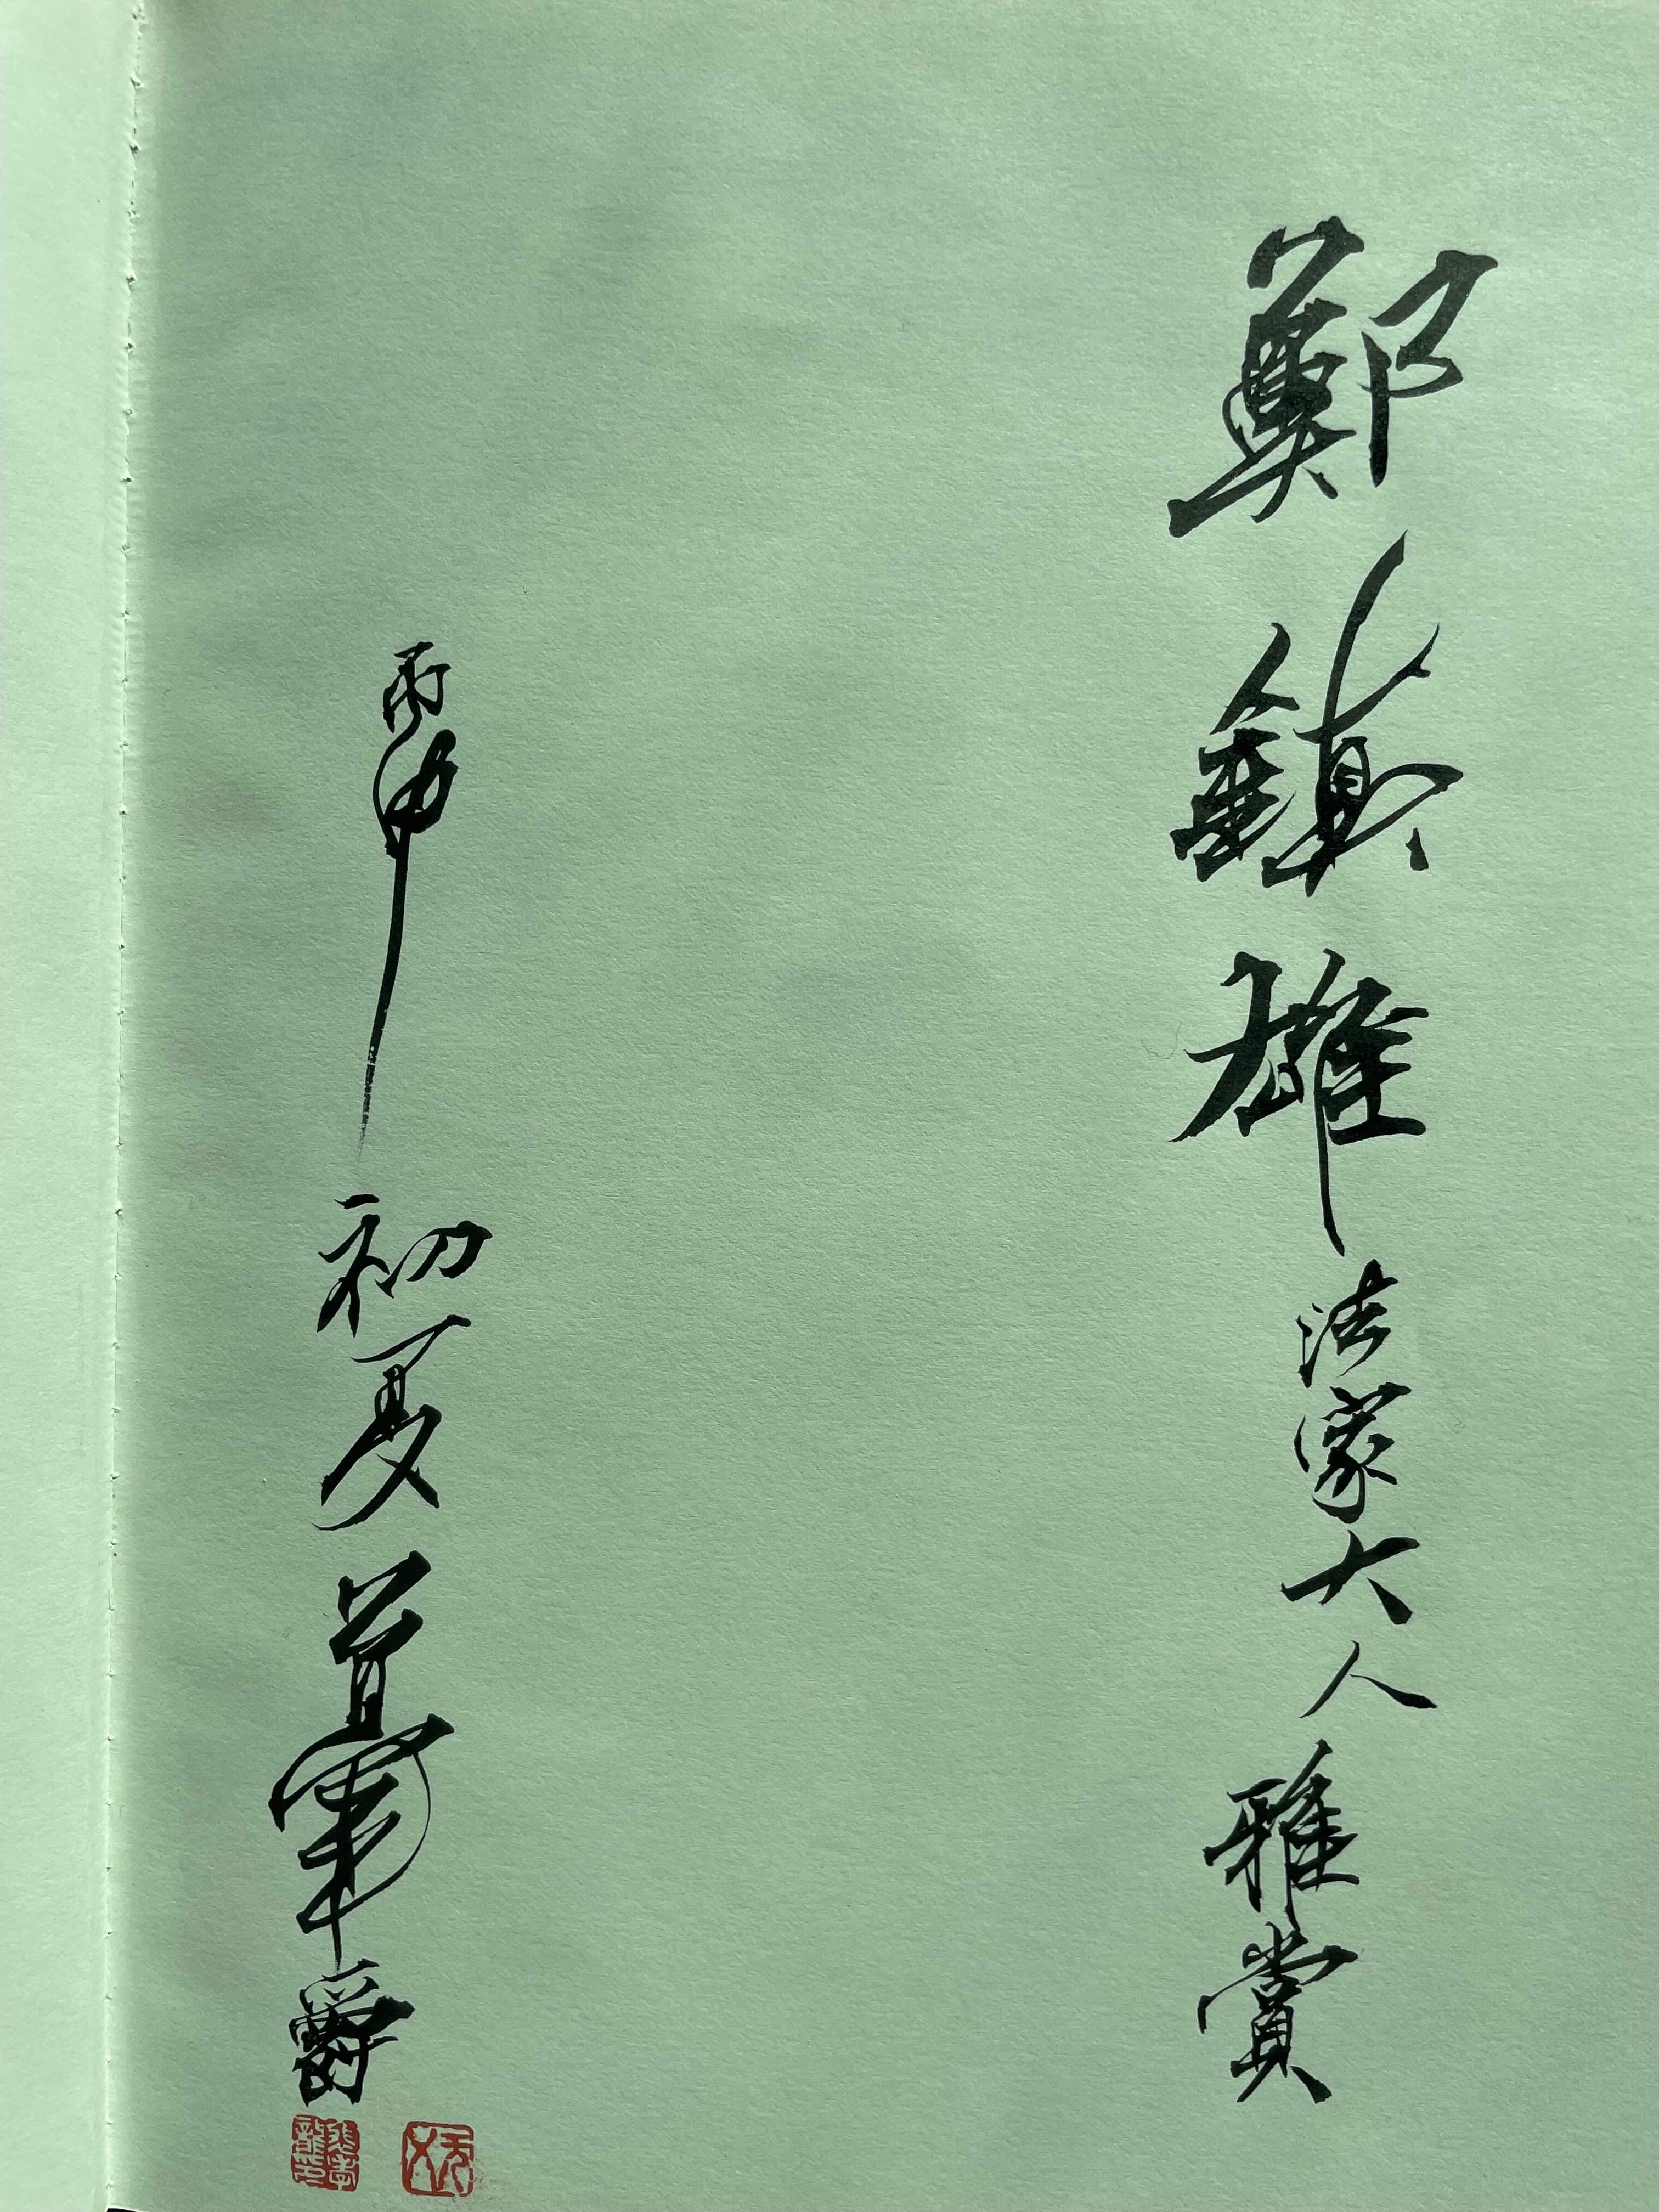 鄭鎮雄法家大人雅賞
丙申初夏